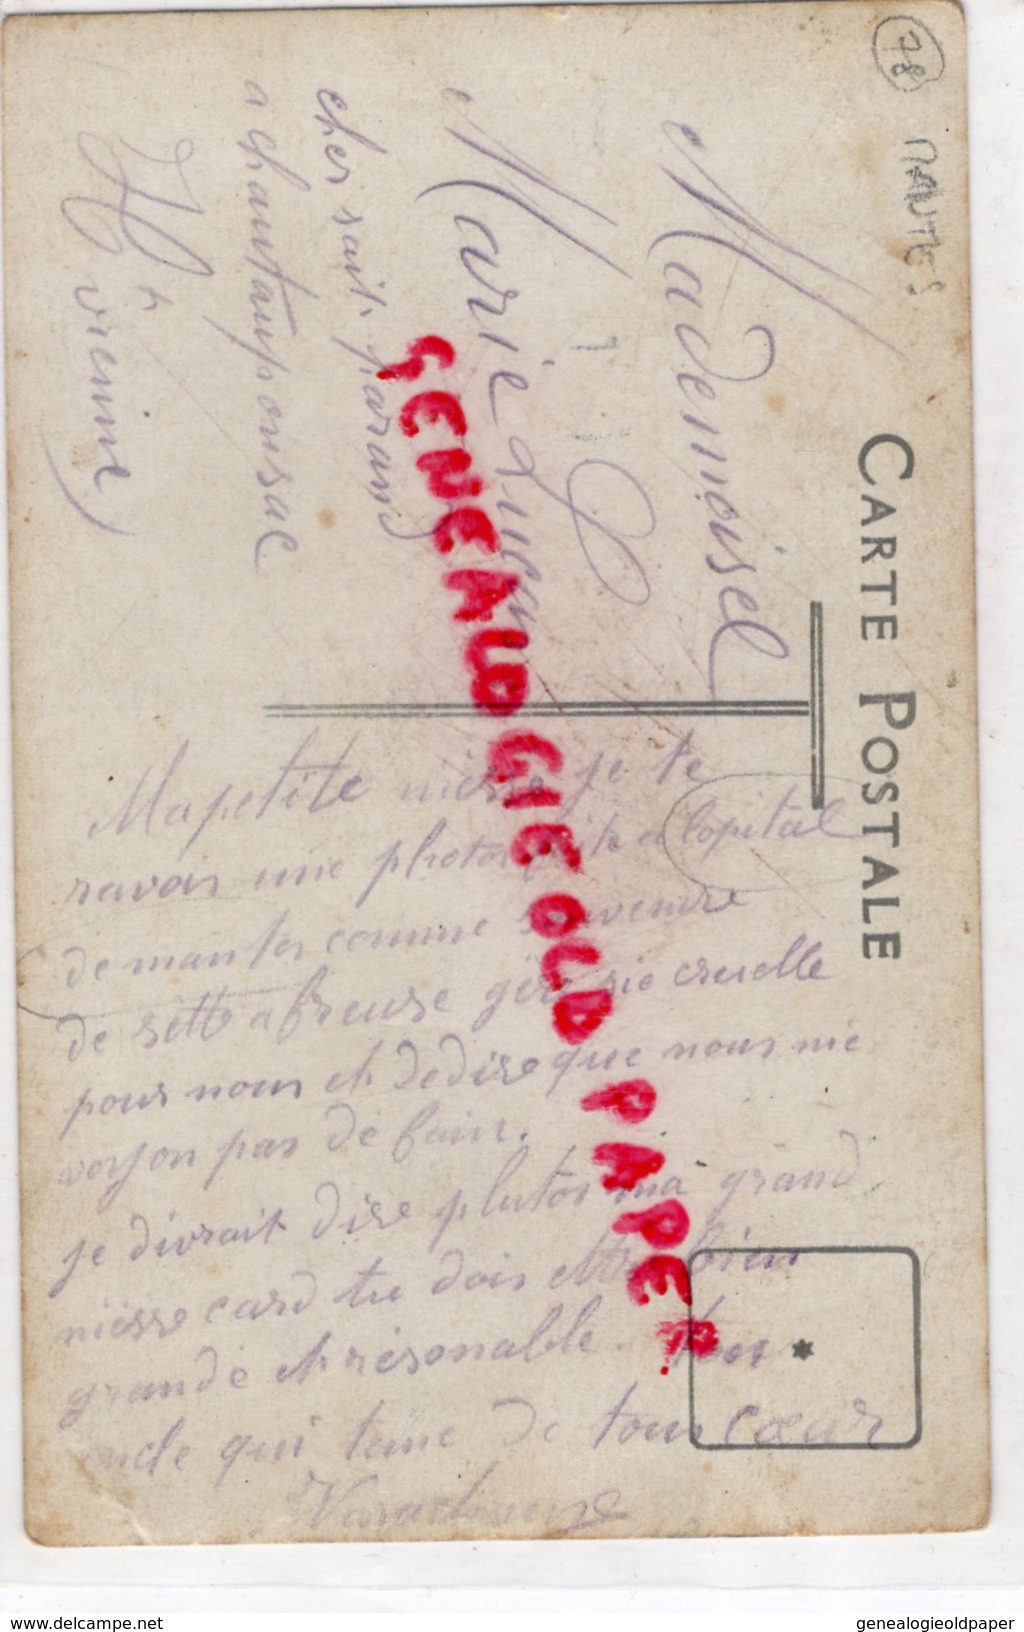 78 MANTES
CARTE POSTALE
Mademoisel
Marie
cher sait parand
a chautauponsac
Ht vienne
Ma petite niesse je te
ravois une photo faite a lopital
de mantes comme souvenire
de sette afreuse gérrie cruelle
pour nous et dedire que nous nie
voyon pas de fain.
je divrait dire plutos ma grand
niesse card tu dois etre bien
grande et résonable. ton
oncle qui teme de tous cœur
GENEALOGIE OLD PAPER
delcampe.net
genealogieoldpaper